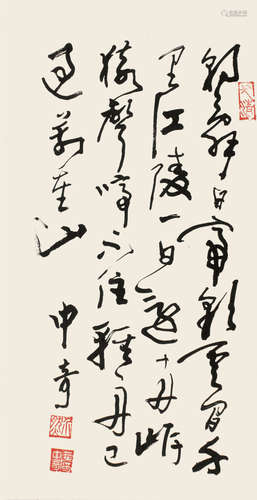 朝辞白帝彩云间千
里江陵一日还两岸
猿聲啼不住轻舟已
过万重山
申奇